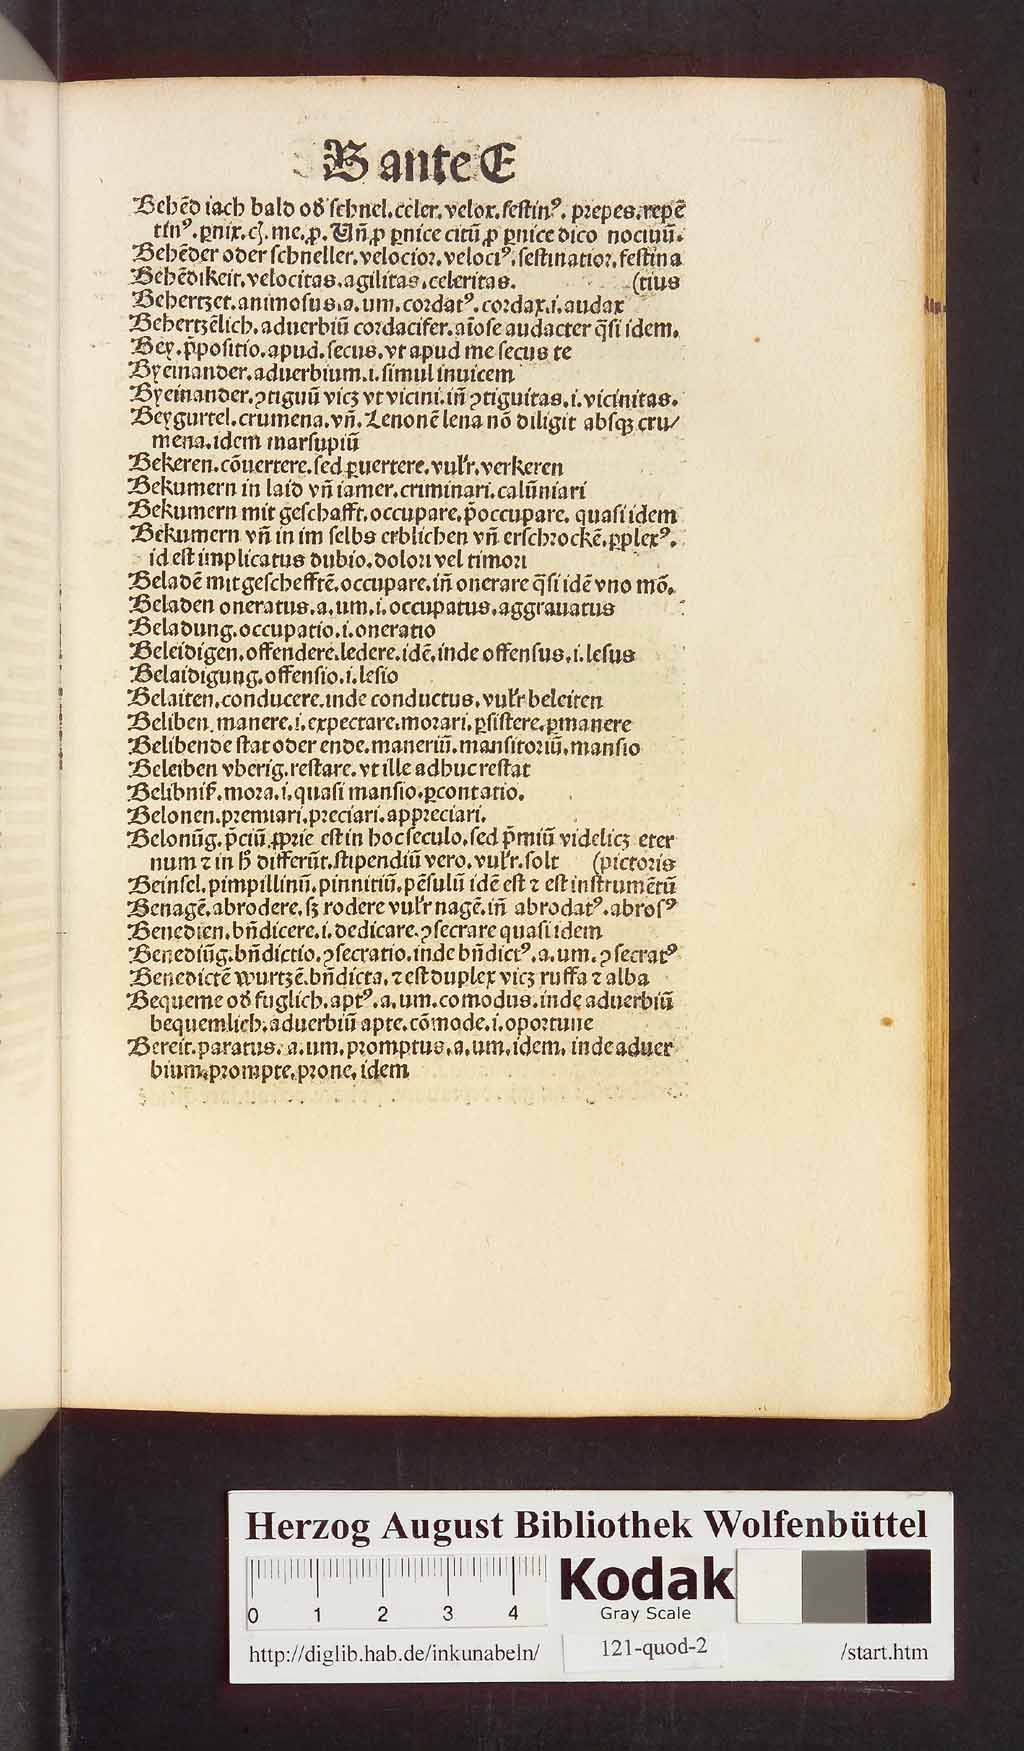 B ante E
Behēd iach bald od̕ schnel. celer. velox. festinꝰ. prepes. repē
tinꝰ. ꝑnix. cꝭ. me. ꝓ. Vñ. ꝓ ꝑnice citū ꝓ ꝑnice dico nociuū.
Behēder oder schneller. velocior. velociꝰ. festinatior. festina
Behēdikeit. velocitas. agilitas. celeritas. (tius
Behertzet. animosus. a. um. cordatꝰ. cordax. i. audax
Behertzēlich. aduerbiū cordaciter. aīose audacter q̄si idem.
Bey. p̄positio. apud. secus. vt apud me secus te
Byeinander. aduerbium. i. simul inuicem
Byeinander. ꝯtiguū vicꝫ vt vicini. iñ ꝯtiguitas. i. vicinitas.
Beygurtel. crumena. vñ. Lenonē lena nō diligit absqꝫ cru/
mena. idem marsupiū
Bekeren. cōuertere. sed ꝑuertere. vulr̕. verkeren
Bekumern in laid vñ iamer. criminari. calūniari
Bekumern mit geschafft. occupare. p̄occupare. quasi idem
Bekumern vñ in im selbs erblichen vñ erschrockē. ꝑplexꝰ.
id est implicatus dubio. dolori vel timori
Beladē mit gescheftē. occupare. iñ onerare q̄si idē vno mō.
Beladen oneratus. a. um. i. occupatus. aggrauatus
Beladung. occupatio. i. oneratio
Beleidigen. offendere. ledere. idē. inde offensus. i. lesus
Belaidigung. offensio. i. lesio
Belaiten. conducere. inde conductus. vulr̕ beleiten
Beliben. manere. i. expectare. morari. ꝑsistere. ꝑmanere
Belibende stat oder ende. maneriū. mansitoriū. mansio
Beleiben vberig. restare. vt ille adhuc restat
Belibniß. mora. i. quasi mansio. ꝑcontatio.
Belonen. premiari. preciari. appreciari.
Belonūg. p̄ciū. ꝓprie est in hoc seculo. sed p̄miū videlicꝫ eter
num ⁊ in h̕ differūt. stipendiū vero. vulr̕. solt (pictoris
Beinsel. pimpillinū. pinnitiū. pēsulū idē est ⁊ est instrumētū
Benagē. abrodere. sꝫ rodere vulr̕ nagē. iñ abrodatꝰ. abrosꝰ
Benedien. bñdicere. i. dedicare. ꝯsecrare quasi idem
Benediūg. bñdictio. ꝯsecratio. inde bñdictꝰ. a. um. ꝯsecratꝰ
Benedictē wurtzē. bñdicta. ⁊ est duplex vicꝫ ruffa ⁊ alba
Bequeme od̕ fuglich. aptꝰ. a. um. comodus. inde aduerbiū
bequemlich. aduerbiū apte. cōmode. i. oportune
Bereit. paratus. a. um. promptus. a. um. idem. inde aduer
bium. prompte. prone. idem
Herzog August Bibliothek Wolfenbüttel
0 1 2 3 4
Kodak
Gray Scale
http://diglib.hab.de/inkunabeln/ 121-quod-2 /start.htm